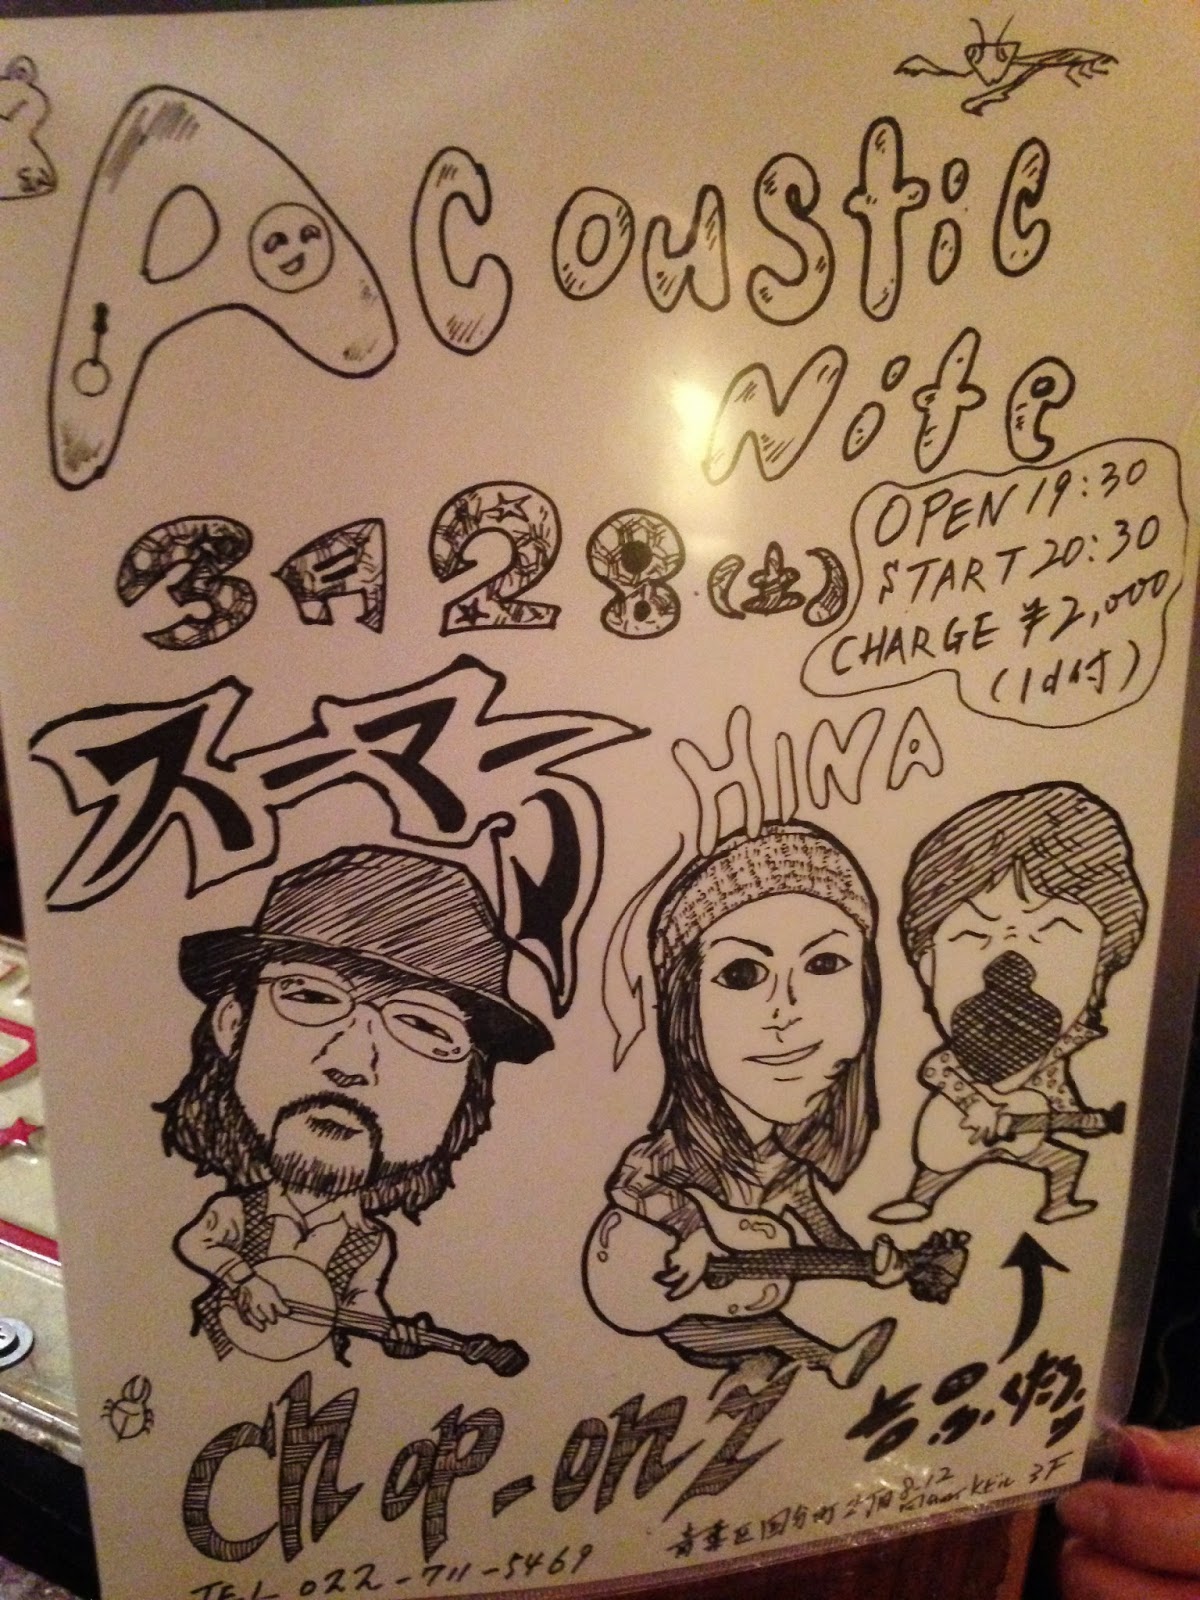 Acoustic
Nite
3月28(土)
OPEN 19:30
START 20:30
CHARGE ¥2,000
(1d付)
スーマー
HINA
Chop-onZ
TEL 022-711-5469
青葉区国分町2丁目8-12
3F